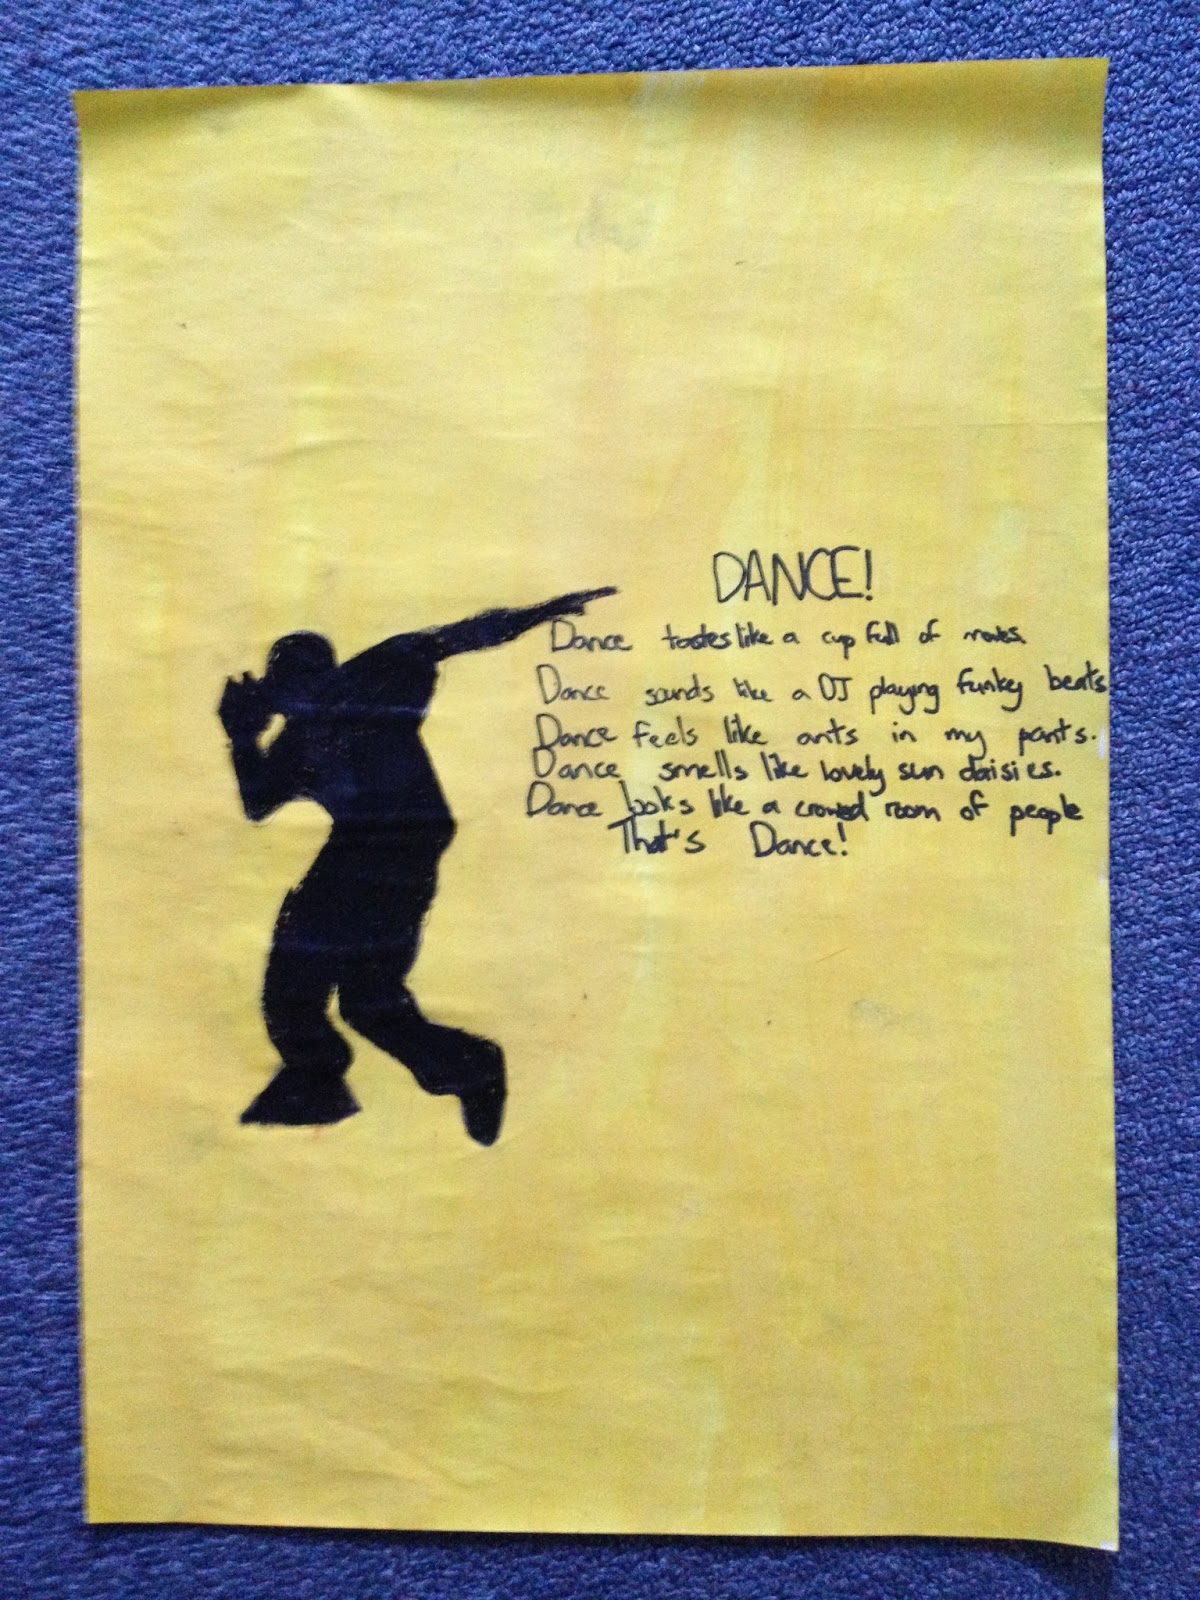 DANCE!
Dance tastes like a cup full of moves.
Dance sounds like a DJ playing funky beats
Dance feels like ants in my pants.
Dance smells like lovely sun daisies.
Dance looks like a crowed room of people
That's Dance!